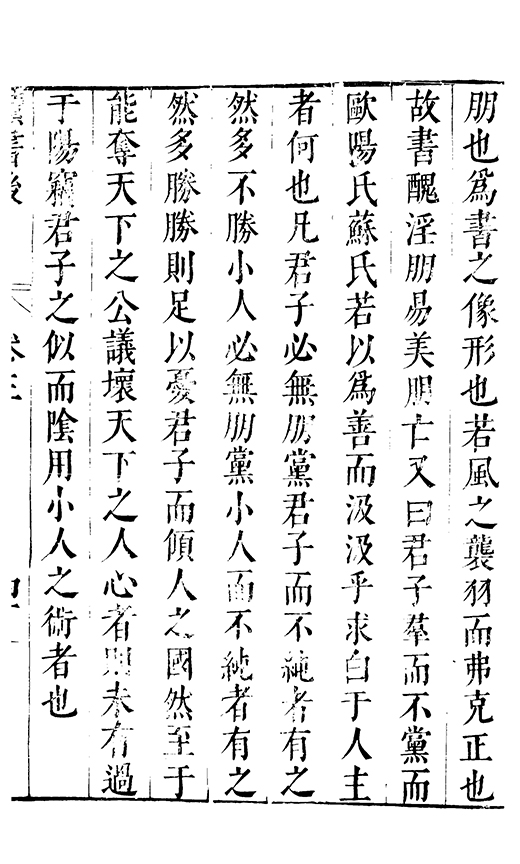 朋也爲書之像形也若風之襲羽而弗克正也
故書醜淫朋易美朋亡又曰君子羣而不黨而
歐陽氏蘇氏若以爲善而汲汲乎求白于人主
者何也凡君子必無朋黨君子而不純者有之
然多不勝小人必無朋黨小人而不純者有之
然多勝勝則足以憂君子而傾人之國然至于
能奪天下之公議壞天下之人心者則未有過
于陽竊君子之似而陰用小人之術者也
讀書後 卷三